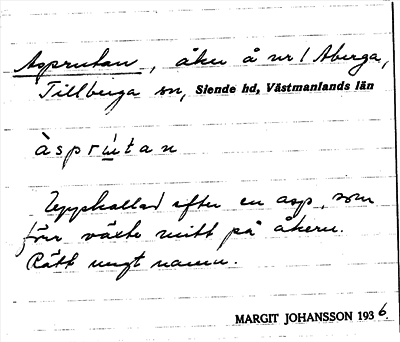 Asprutan, åker å nr 1 Åberga,
Tillberga sn, Siende hd, Västmanlands län
àsprɯ́tan
Uppkallad efter en asp, som
förr växte mitt på åkern.
Rätt ungt namn.
MARGIT JOHANSSON 1936.